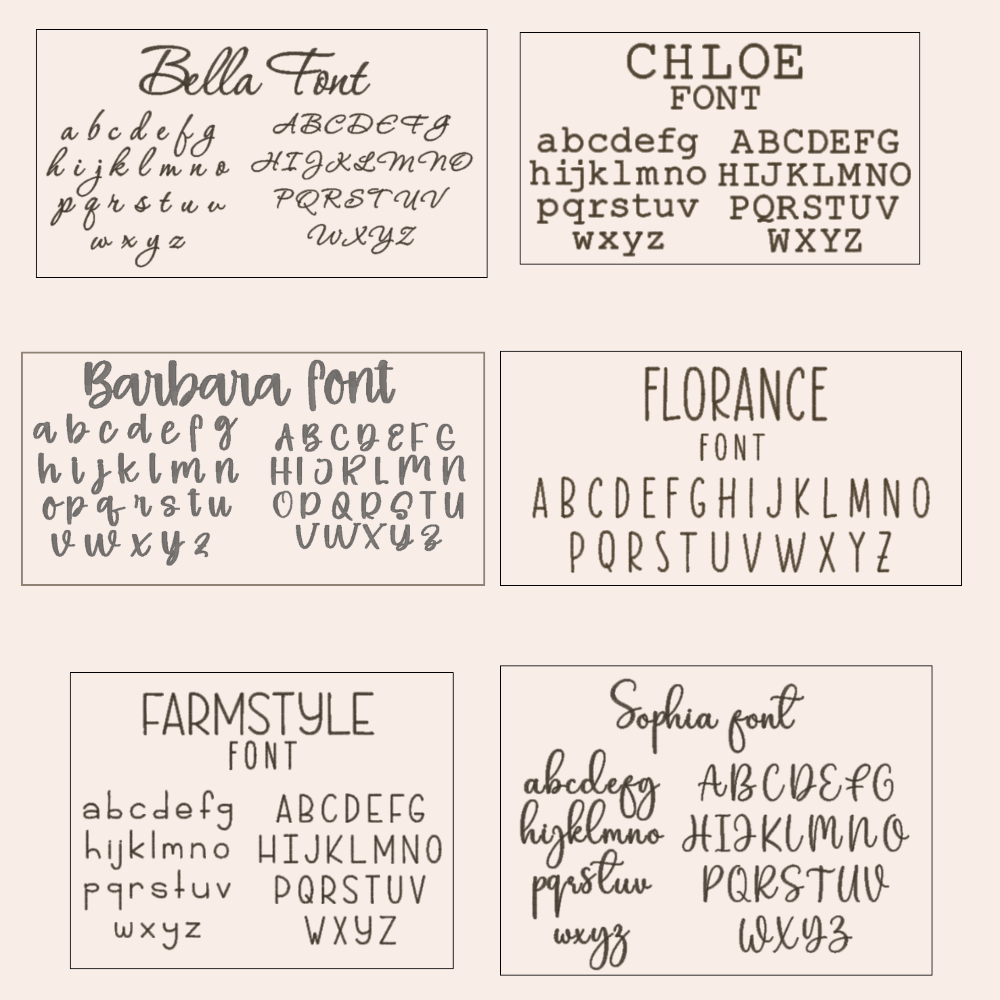 Bella Font
a b c d e f g
h i j k l m n o
p q r s t u v
w x y z
ABCDEFG
HIJKLMNO
PQRSTUV
WXYZ
CHLOE
FONT
abcdefg
hijklmno
pqrstuv
wxyz
ABCDEFG
HIJKLMNO
PQRSTUV
WXYZ
Barbara font
a b c d e f g
h i j k l m n
o p q r s t u
v w x y z
A B C D E F G
H I J K L M N
O P Q R S T U
V W X Y Z
FLORANCE
FONT
A B C D E F G H I J K L M N O
P Q R S T U V W X Y Z
FARMSTYLE
FONT
abcdefg
hijklmno
pqrstuv
wxyz
ABCDEFG
HIJKLMNO
PQRSTUV
WXYZ
Sophia font
abcdefg
hijklmno
pqrstuv
wxyz
ABCDEFG
HIJKLMNO
PQRSTUV
WXYZ